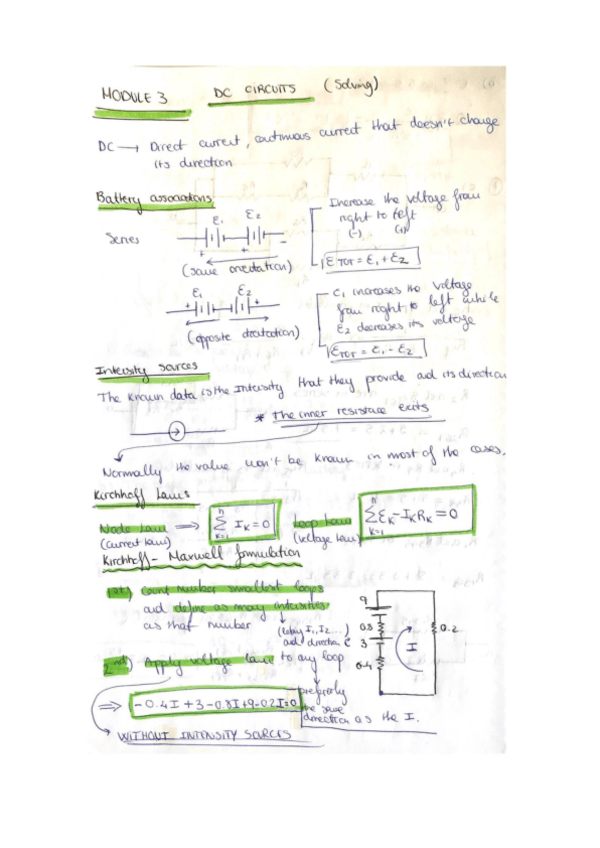 MODULE 3 DC CIRCUITS (Solving)
DC → Direct current, continuous current that doesn't change
its direction
Battery associations
Series
ε1 ε2
+ -
(same orientation)
Increase the voltage from
right to left
(-) (+)
εTOT = ε1 + ε2
ε1 ε2
+ +
(opposite orientation)
ε1 increases the voltage
from right to left while
ε2 decreases its voltage
εTOT = ε1 - ε2
Intensity sources
The known data is the intensity that they provide and its direction
* The inner resistace exits
Normally the value won't be known in most of the cases.
Kirchhoff Laws
Node Law ⇒ n Σ k=1 IK = 0
(current law)
Loop Law n Σ k=1 EK - IKRK = 0
(voltage law)
Kirchhoff - Maxwell formulation
1st) Count number smallest loops
and define as many intensities
as that number
(labey I1, I2 ...)
and direction
2nd) Apply voltage law to any loop
preferably
the same
direction as the I.
-0.4I + 3 - 0.8I + 9 - 0.2I = 0
WITHOUT INTENSITY SOURCES
9
0.8
3
0.4
I
0.2